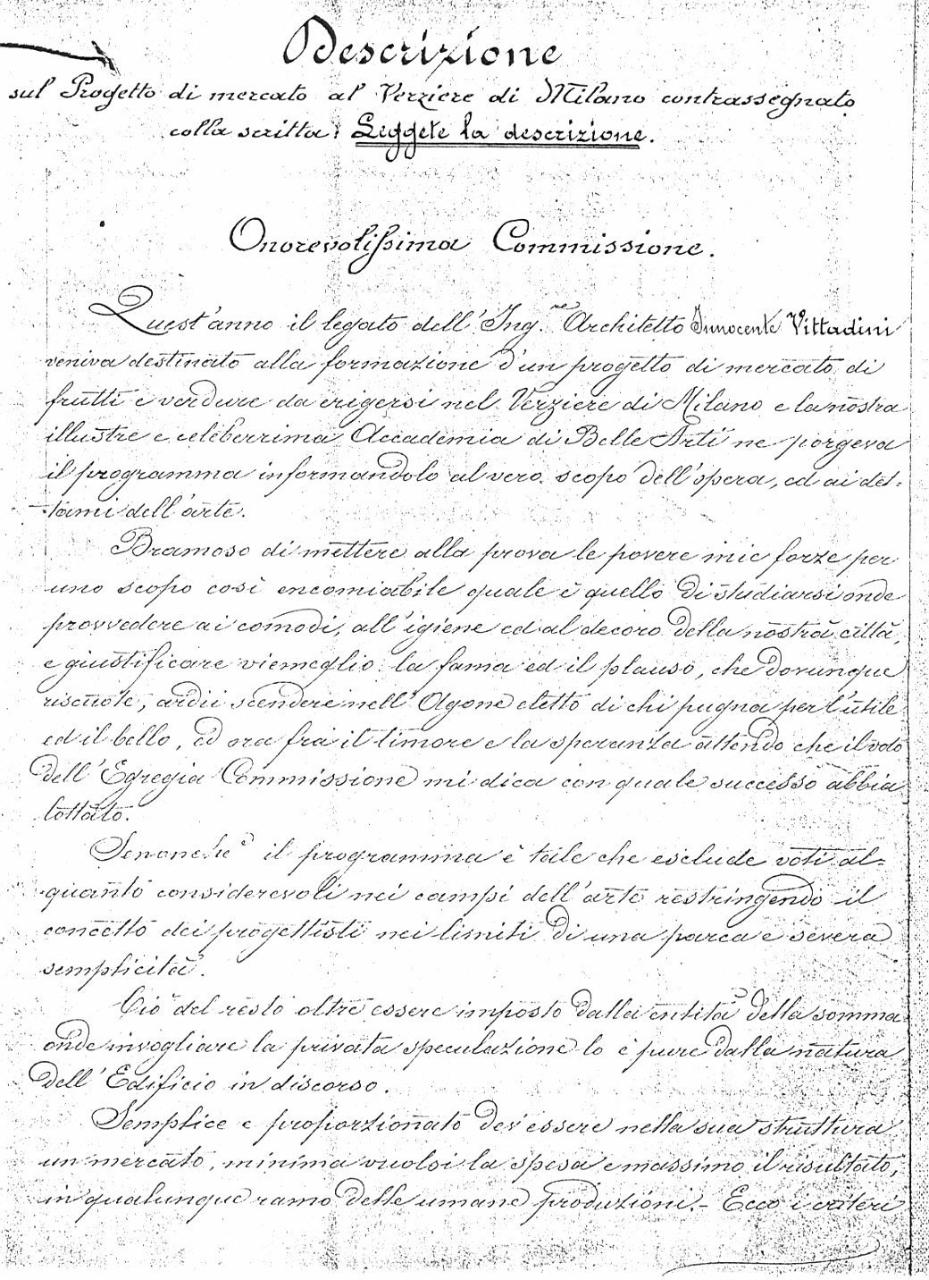 Descrizione
sul Progetto di mercato al Verziere di Milano contrassegnato
colla scritta: Leggete la descrizione.
Onorevolissima Commissione.
Quest'anno il legato dell'Ing.re Architetto Innocente Vittadini
veniva destinato alla formazione d'un progetto di mercato di
frutti e verdure da erigersi nel Verziere di Milano e la nostra
illustre e celeberrima Accademia di Belle Arti ne porgeva
il programma informandolo al vero scopo dell'opera, ed ai det-
-tami dell'arte.
Bramoso di mettere alla prova le povere mie forze per
uno scopo così encomiabile quale è quello di studiarsi onde
provvedere ai comodi, all'igiene ed al decoro della nostra città,
e giustificare viemeglio la fama ed il plauso, che dovunque
riscuote, ardii scendere nell'Agone eletto di chi pugna per l'utile
ed il bello, ed ora fra il timore e la speranza attendo che il voto
dell'Egregia Commissione mi dica con quale successo abbia
lottato.
Senonchè il programma è tale che esclude voti al=
quanto considerevoli nei campi dell'arte restringendo il
concetto dei progettisti nei limiti di una parca e severa
semplicità.
Ciò del resto oltre essere imposto dalla entità della somma
onde invogliare la privata speculazione lo è pure dalla natura
dell'Edificio in discorso.
Semplice e proporzionato dev'essere nella sua struttura
un mercato, minima vuolsi la spesa e massimo il risultato,
in qualunque ramo delle umane produzioni.- Ecco i criteri